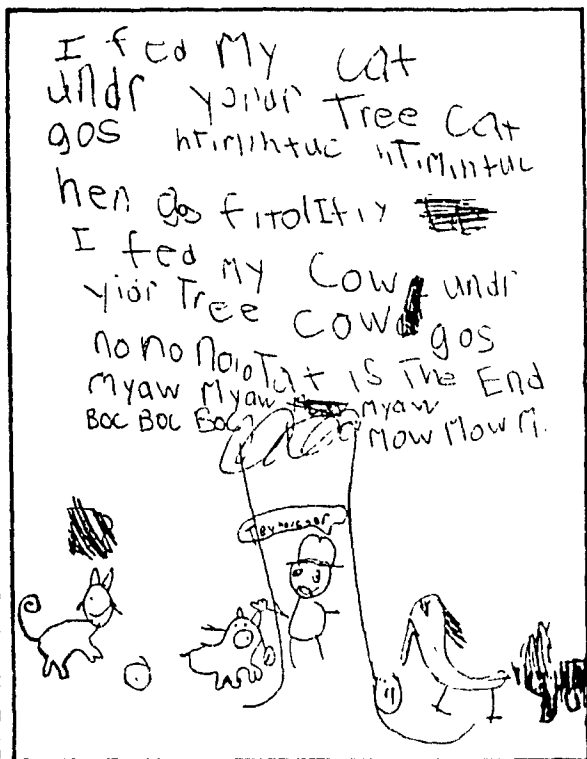 I fed My cat
undr yoidr Tree Cat
gos hTiMihtuc hTiMihtuc
hen gos fitolItiy
I fed MY COW undr
yior Tree COW gos
no no no Tat is The End
Myaw Myaw Myaw
BOC BOC BOC MOW MOW M.